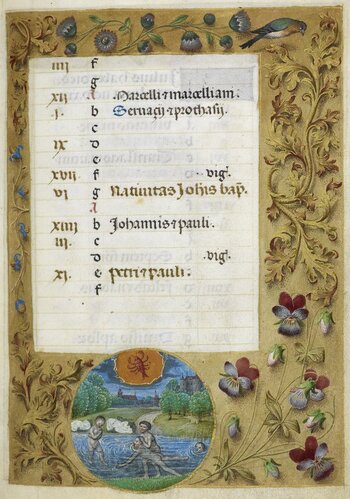 iiii f
g
xii A Marcelli ⁊ marcelliam.
i. b Geruaẜij ⁊ prothasij.
c
ix d
e
xvii f vigl'.
vi g Natiuitas Johis bap̃.
A
xiiii b Johannis ⁊ pauli.
iii. c
d vigl'.
xi. e Petri ⁊ pauli.
f